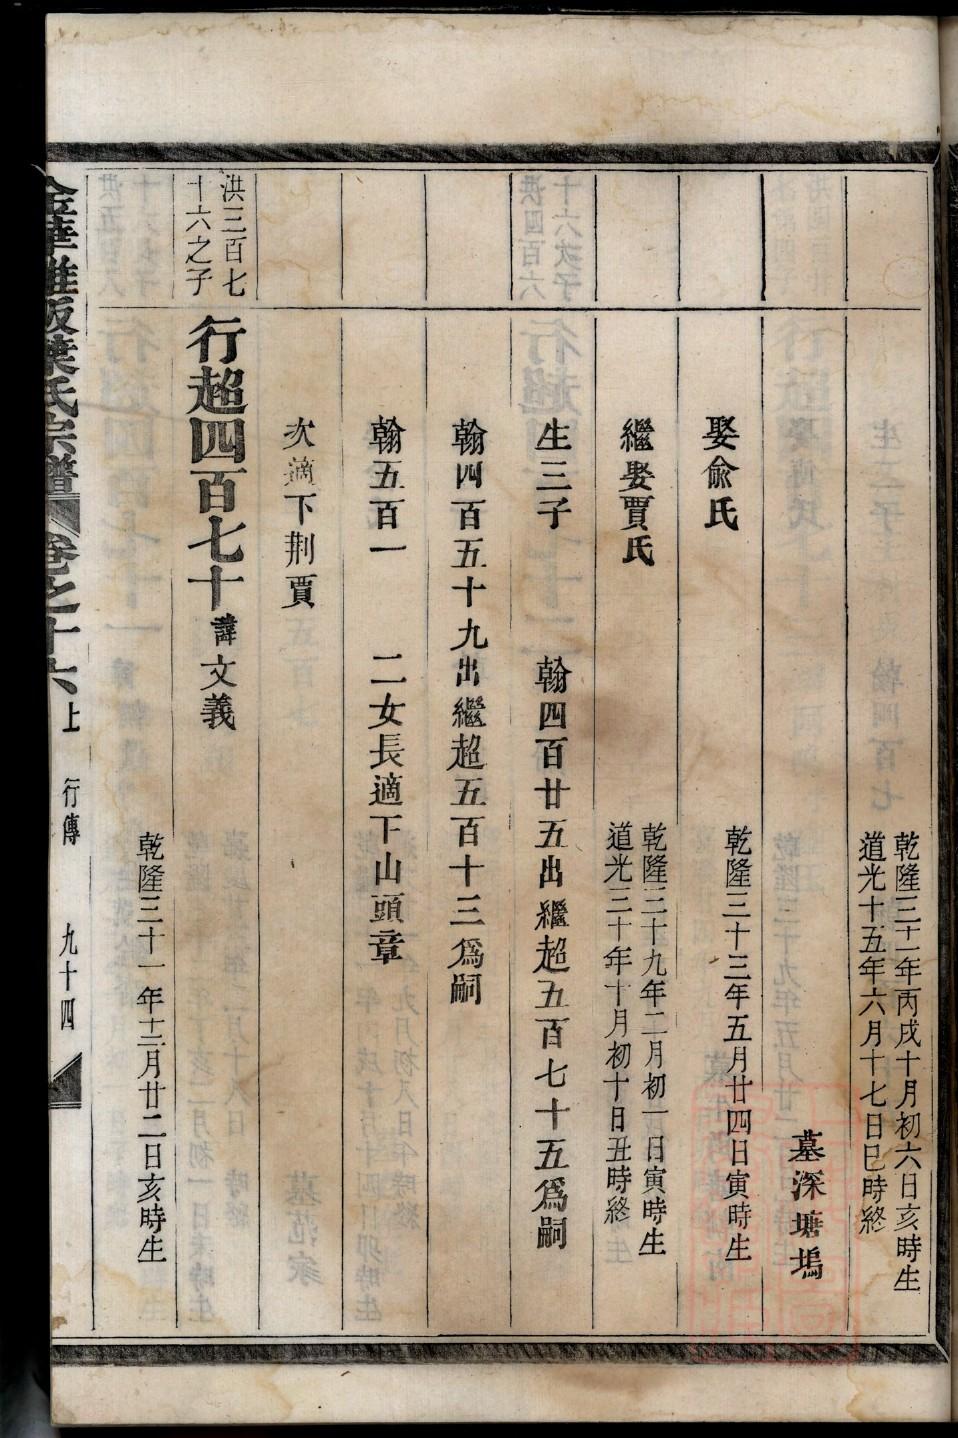 乾隆三十一年丙戌十月初六日亥時生
道光十五年六月十七日巳時終
墓深塘塢
娶俞氏
乾隆三十三年五月廿四日寅時生
繼娶賈氏
乾隆三十九年二月初一日寅時生
道光三十年十月初十日丑時終
生三子 翰四百廿五出繼超五百七十五爲嗣
翰四百五十九出繼超五百十三爲嗣
翰五百一 二女長適下山頭章
次適下荆賈
洪三百七
十六之子
行超四百七十諱文義
乾隆三十一年十二月廿二日亥時生
金華 葉氏宗譜 卷之十六上 行傳 九十四